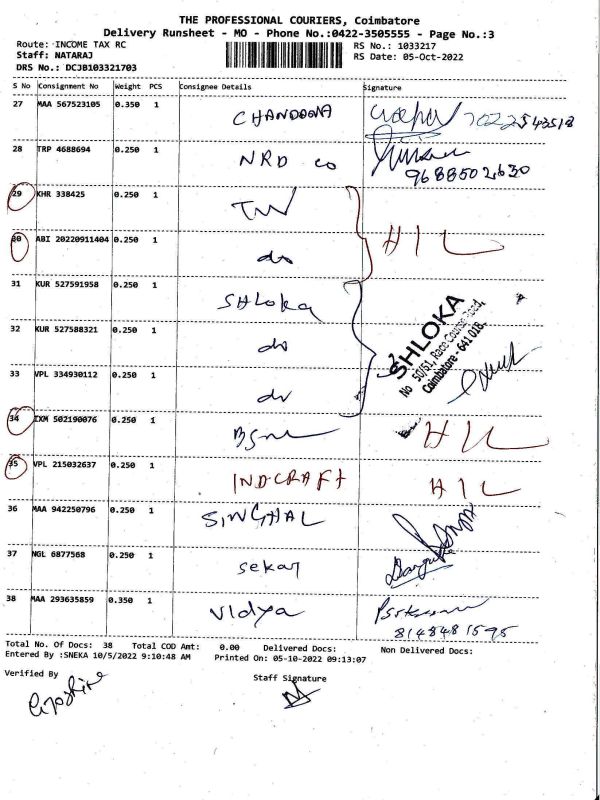 THE PROFESSIONAL COURIERS, Coimbatore
Delivery Runsheet - MO - Phone No.:0422-3505555 - Page No.:3
Route: INCOME TAX RC RS No.: 1033217
Staff: NATARAJ RS Date: 05-Oct-2022
DRS No.: DCJB103321703
S No Consignment No Weight PCS Consignee Details Signature
27 MAA 567523105 0.350 1 CHANDONA
28 TRP 4688694 0.250 1 NRD co
9688502630
29 KHR 338425 0.250 1 TW
30 ABI 20220911404 0.250 1 do HIL
31 KUR 527591958 0.250 1 SHLoka
32 KUR 527588321 0.250 1 do
SHLOKA
No 50/51, Race Course Road,
Coimbatore - 641 018.
33 VPL 334930112 0.250 1 do
34 IXM 502190076 0.250 1 HIL
35 VPL 215032637 0.250 1 INDCRAFT HIL
36 MAA 942250796 0.250 1 SINGHAL
37 NGL 6877568 0.250 1 sekar
38 MAA 293635859 0.350 1 Vidya
8148481595
Total No. Of Docs: 38 Total COD Amt: 0.00 Delivered Docs: Non Delivered Docs:
Entered By :SNEKA 10/5/2022 9:10:48 AM Printed On: 05-10-2022 09:13:07
Verified By Staff Signature